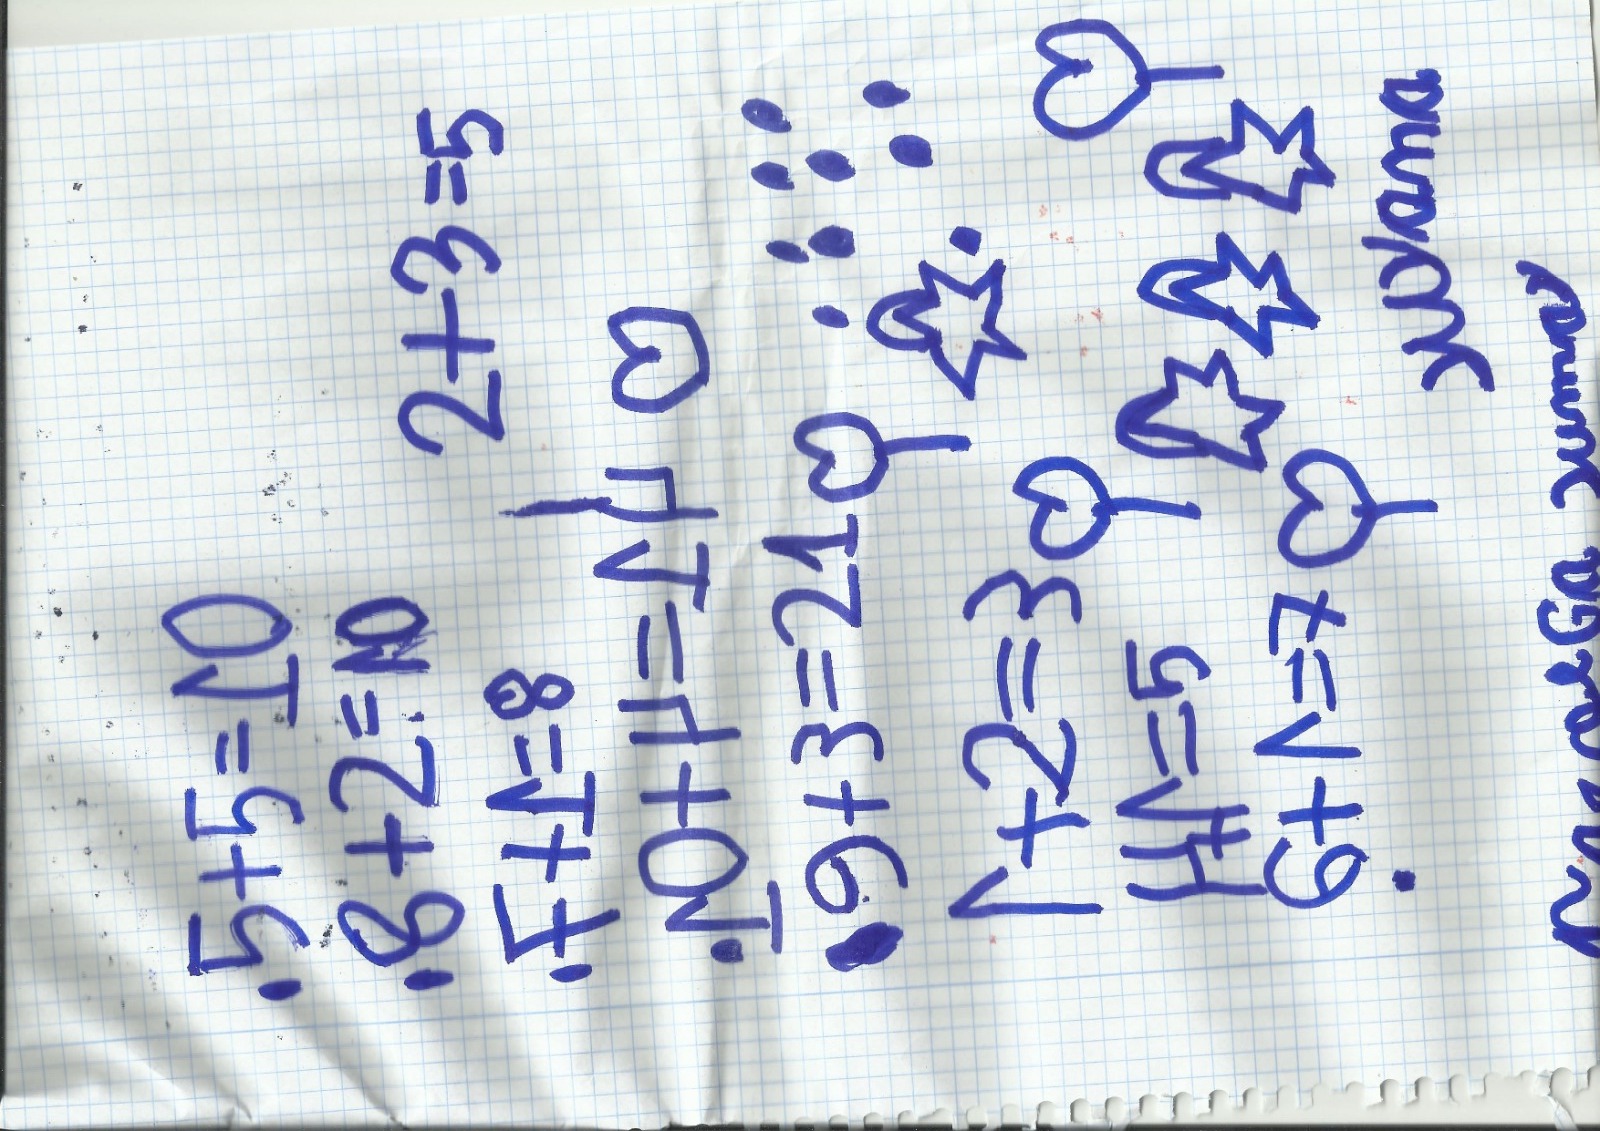 5+5=10
8+2=10
2+3=5
7+1=8
10+4=14
9+3=21
1+2=3
4+1=5
6+1=7